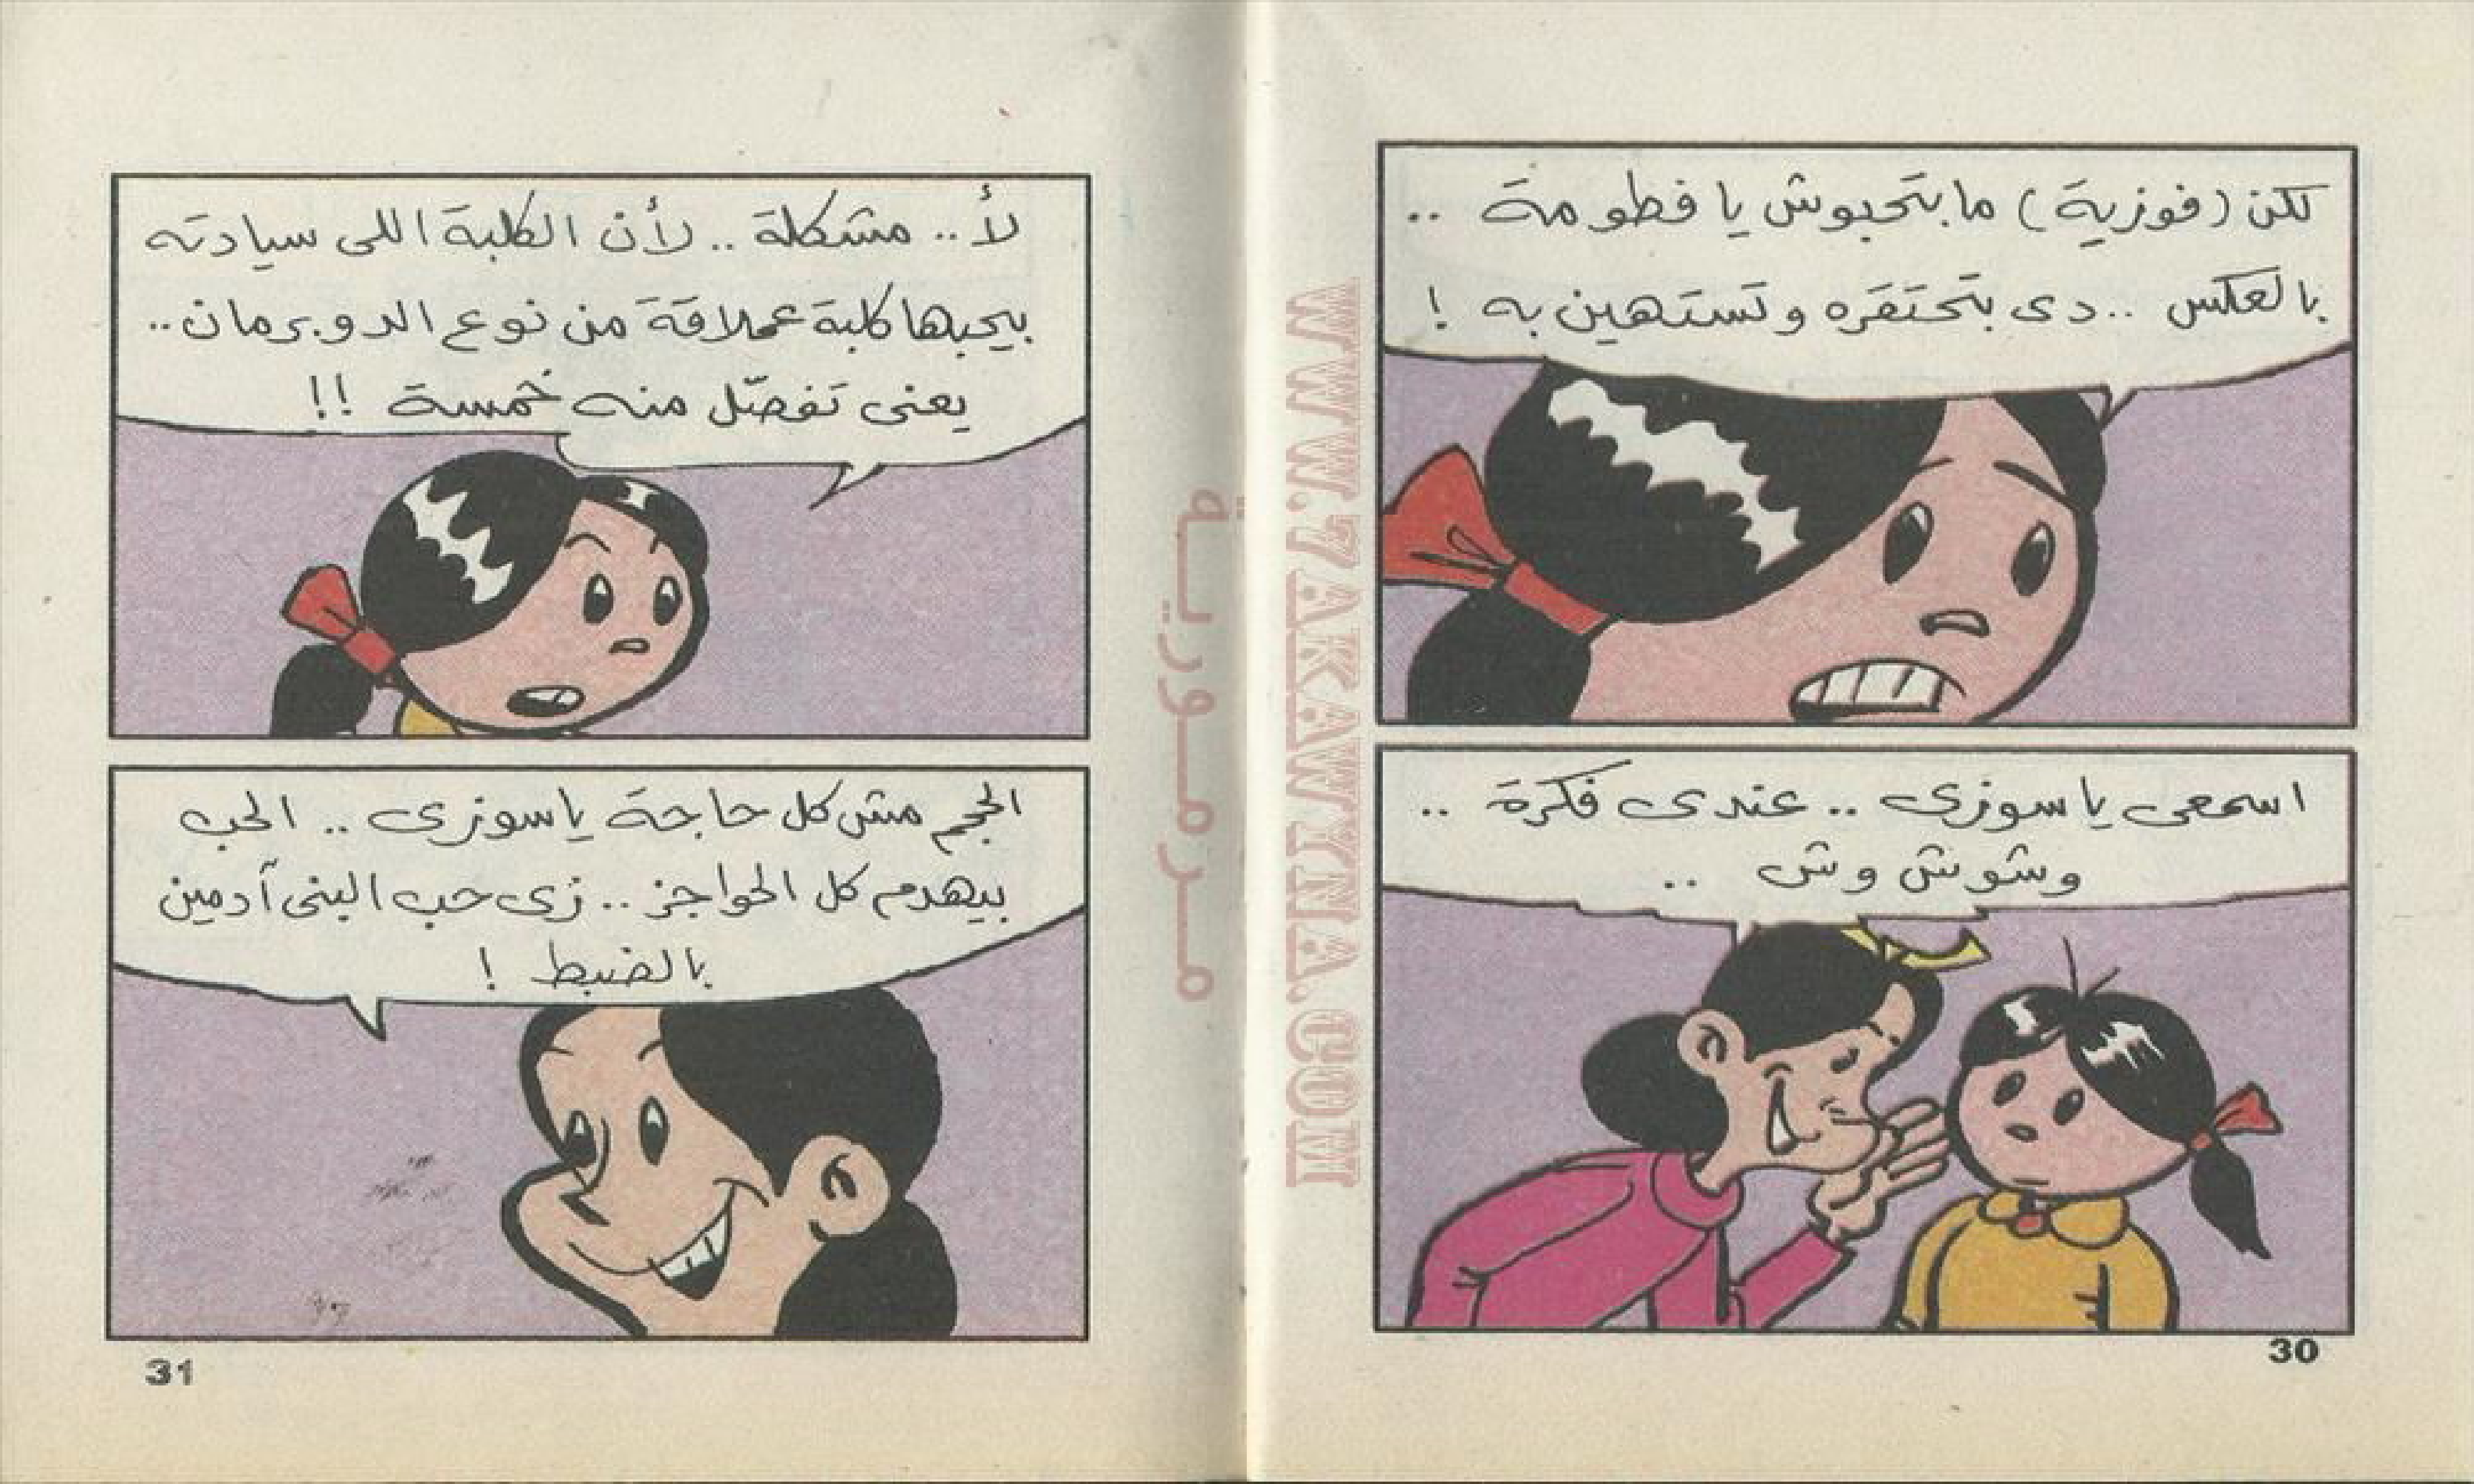 لكن (فوزية) مابتحبوش يا فطومة ..
بالعكس .. دى بتحتقره وتستهين به !
اسمعى ياسوزى .. عندى فكرة ..
وشوش وش ..
30
لأ .. مشكلة .. لأن الكلبة اللى سيادته
بيحبها كلبة عملاقة من نوع الدوبرمان ..
يعنى تفصّل منه خمسة !!
الحجم مش كل حاجة ياسوزى .. الحب
بيهدم كل الحواجز .. زى حب البنى آدمين
بالضبط !
31
مرمورية
WWW.7AKAWYNA.COM